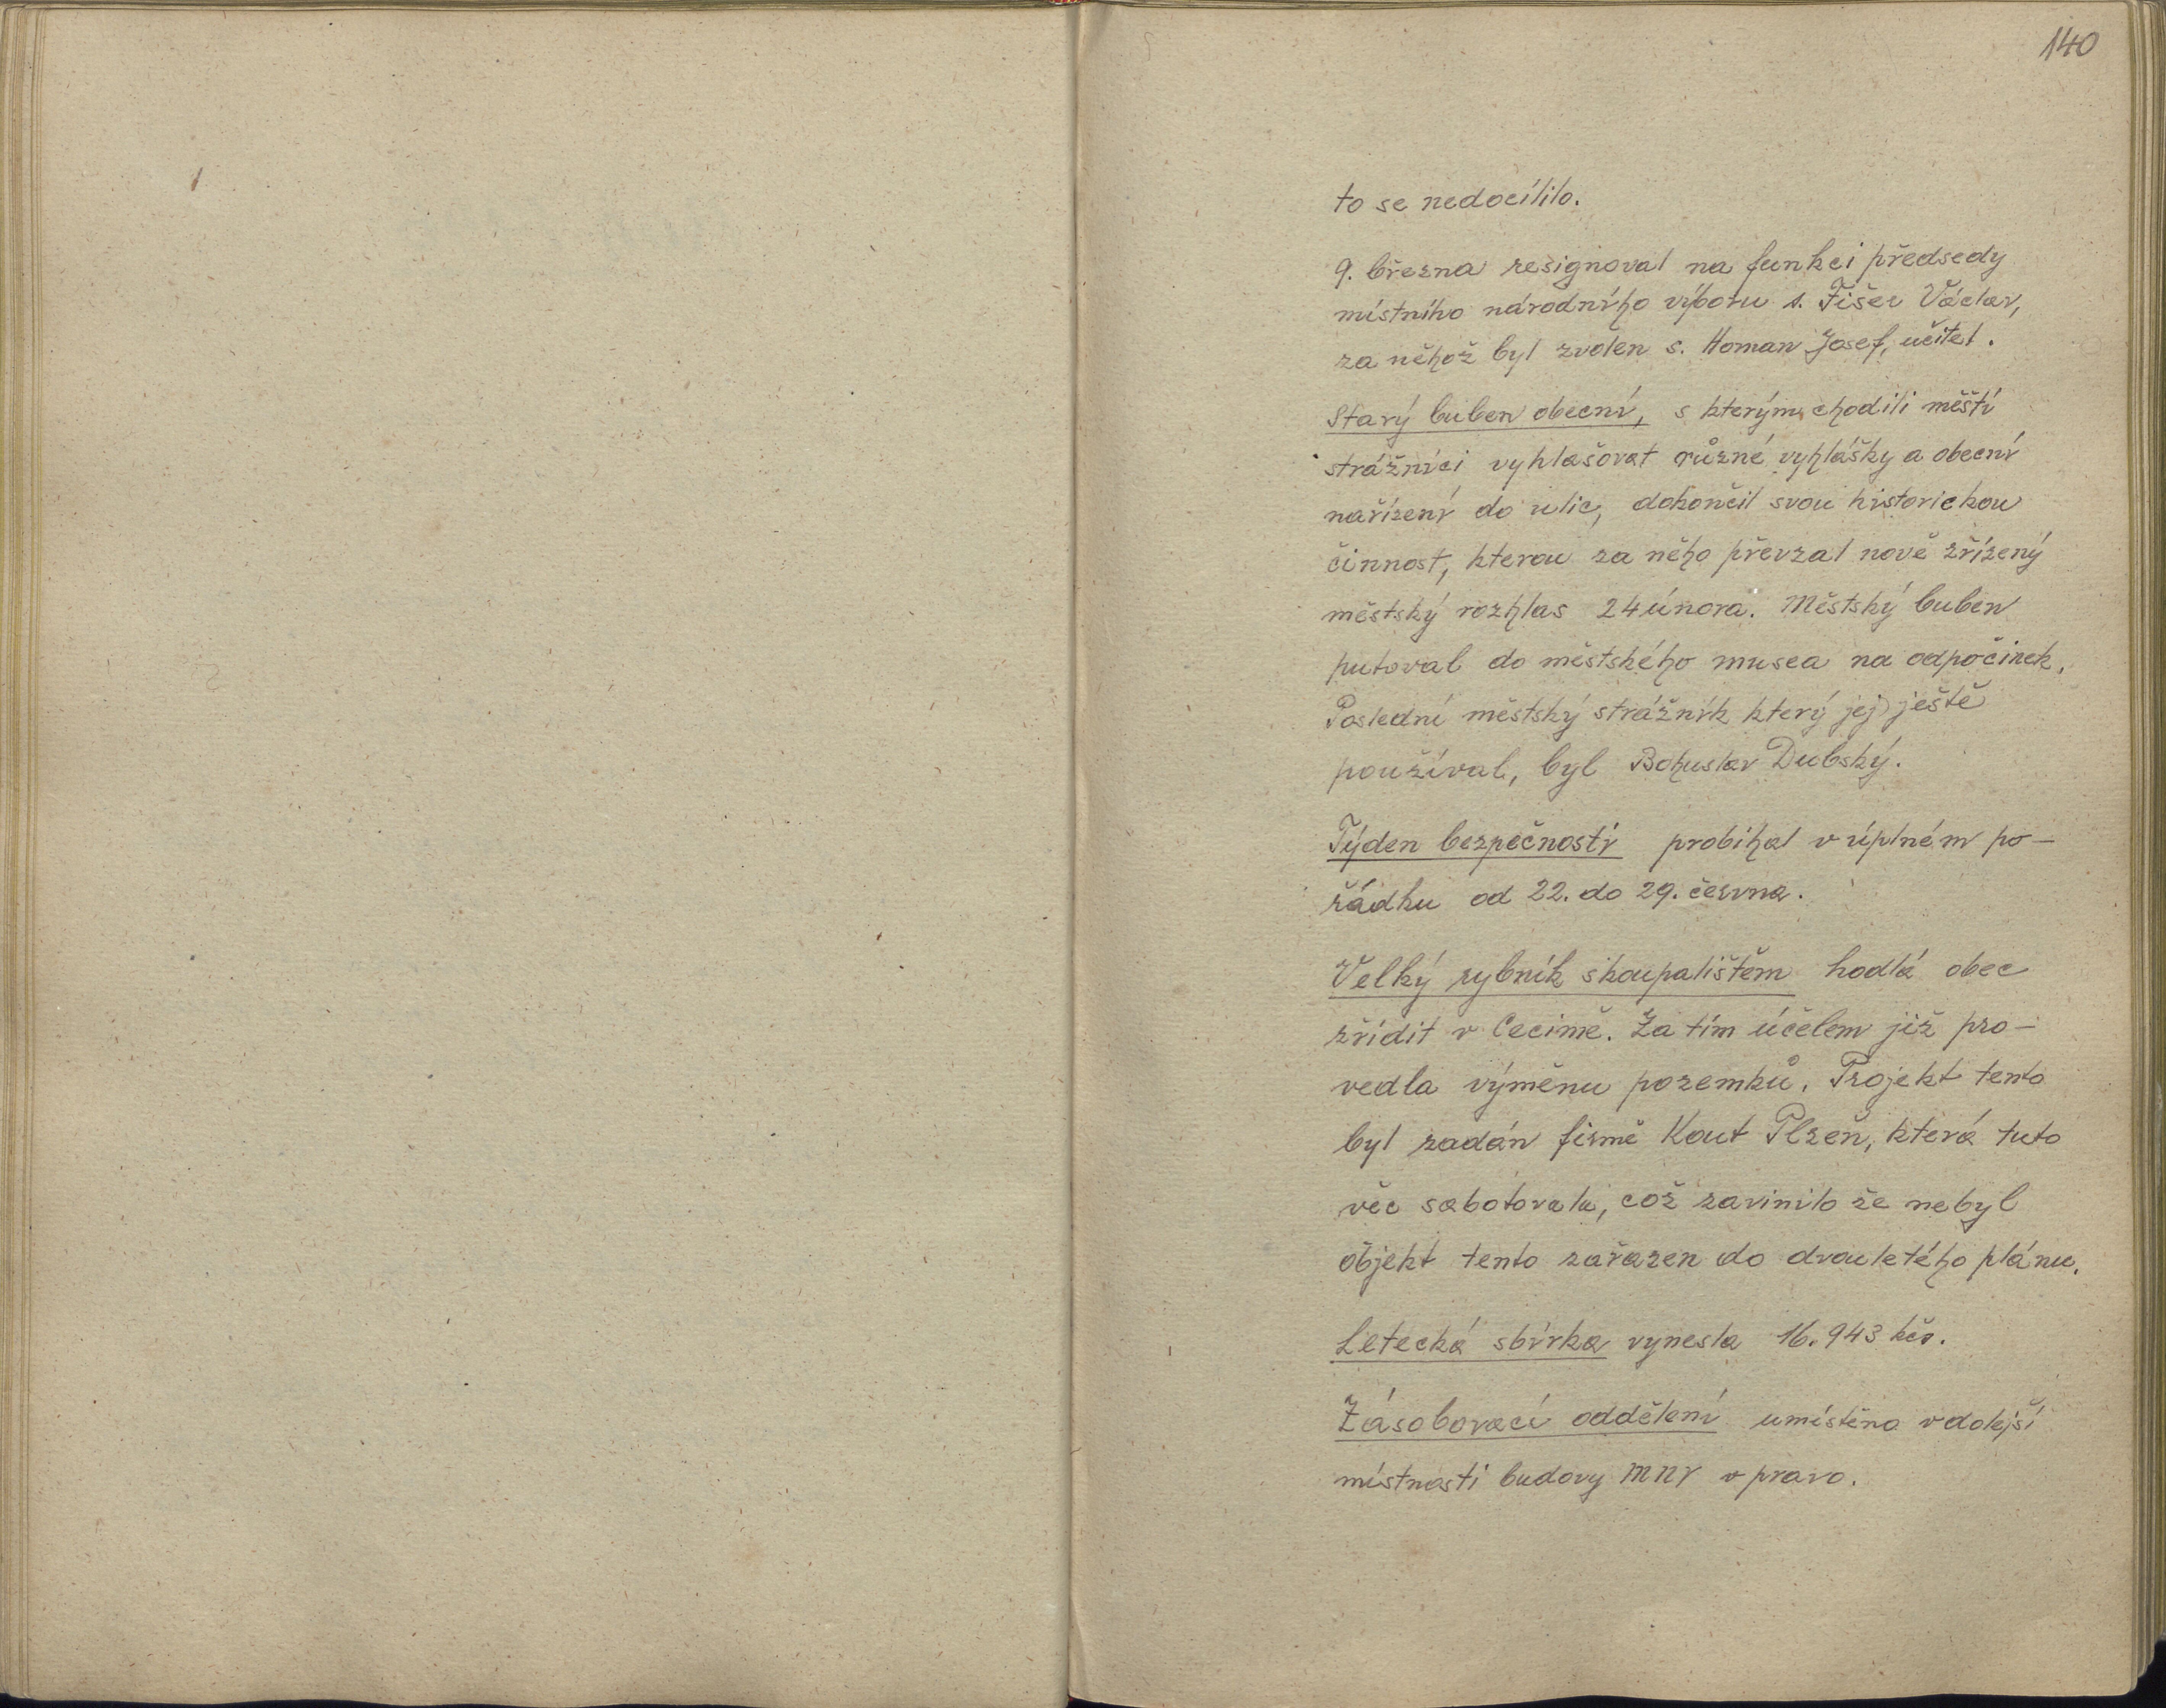 140
to se nedocílilo.
9. března resignoval na funkci předsedy
místního národního výboru s. Fišer Václav,
za něhož byl zvolen s. Homan Josef, učitel.
Starý buben obecní, s kterým chodili měští
strážníci vyhlašovat různé vyhlášky a obecní
nařízení do ulic, dokončil svou historickou
činnost, kterou za něho převzal nově zřízený
městský rozhlas 24 února. Městský buben
putoval do městského musea na odpočinek.
Poslední městský strážník který jej ještě
používal, byl Bohuslav Dubský.
Týden bezpečnosti probíhal v úplném po-
řádku od 22. do 29. června.
Velký rybník s koupalištěm hodlá obec
zřídit v Cecimě. Za tím účelem již pro-
vedla výměnu pozemků. Projekt tento
byl zadán firmě Kout Plzeň, která tuto
věc sabotovala, což zavinilo že nebyl
objekt tento zařazen do dvouletého plánu.
Letecká sbírka vynesla 16.943 kčs.
Zásobovací oddělení umístěno v dolejší
místnosti budovy MNV v pravo.